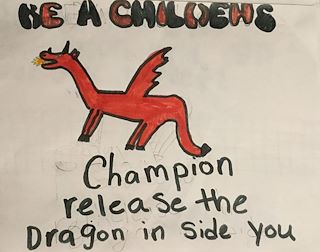 BE A CHILDENS
Champion
release the
Dragon in side you